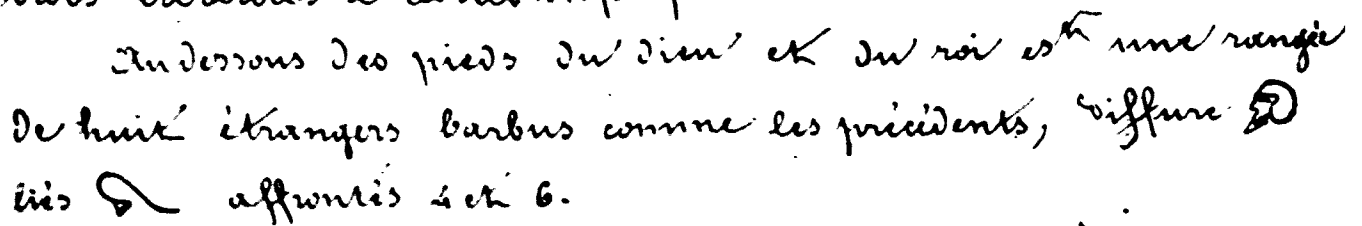 Au dessous des pieds du dieu et du roi est une rangée
de huit étrangers barbus comme les précédents,
liés affrontés 4 et 6.